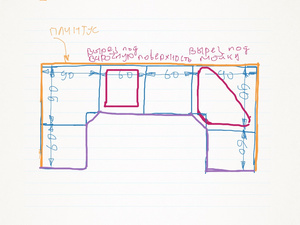 ПЛИНТУС
Вырез под Вырез под
варочную поверхность мойки
90 60 60 90
90 90
60 60